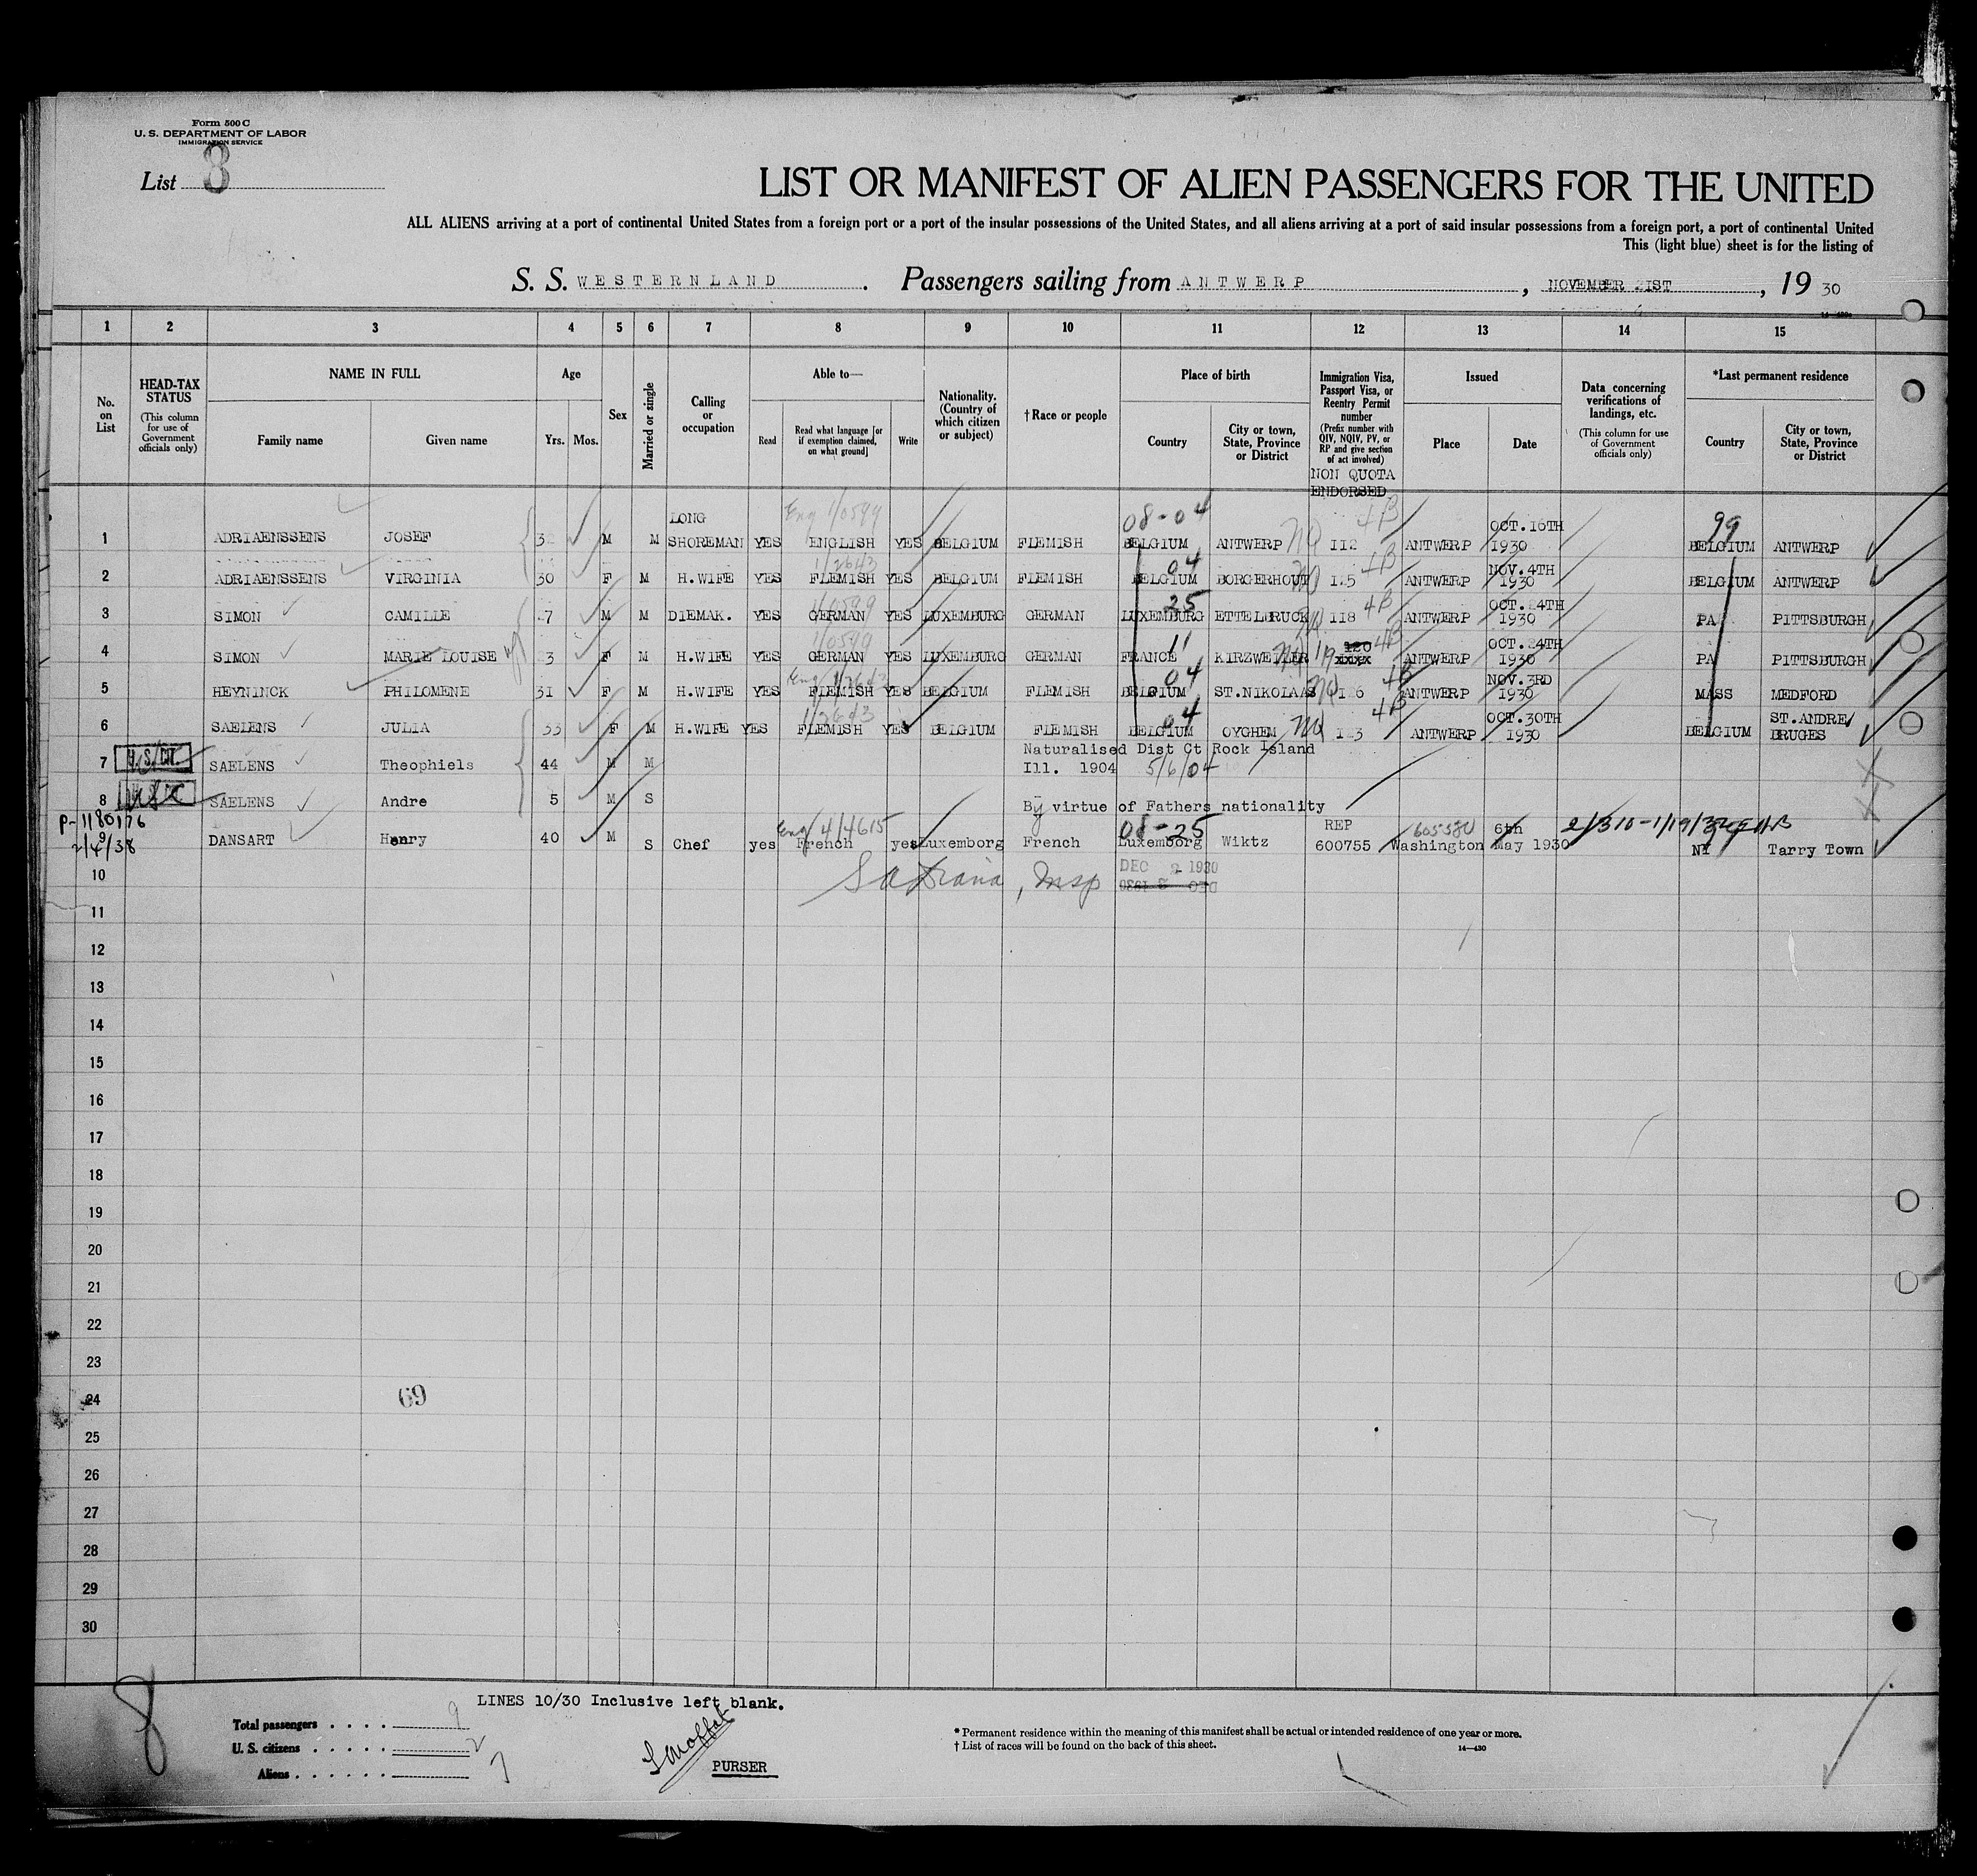 Form 500 C
U. S. DEPARTMENT OF LABOR
IMMIGRATION SERVICE
List 8
LIST OR MANIFEST OF ALIEN PASSENGERS FOR THE UNITED
ALL ALIENS arriving at a port of continental United States from a foreign port or a port of the insular possessions of the United States, and all aliens arriving at a port of said insular possessions from a foreign port, a port of continental United
This (light blue) sheet is for the listing of
S. S. WESTERNLAND. Passengers sailing from ANTWERP, NOVEMBER 21ST, 19 30
1 2 3 4 5 6 7 8 9 10 11 12 13 14 15
No. on List
HEAD-TAX STATUS (This column for use of Government officials only)
NAME IN FULL
Family name Given name
Age
Yrs. Mos.
Sex
Married or single
Calling or occupation
Able to—
Read Read what language [or if exemption claimed, on what ground] Write
Nationality. (Country of which citizen or subject)
†Race or people
Place of birth
Country City or town, State, Province or District
Immigration Visa, Passport Visa, or Reentry Permit number (Prefix number with QIV, NQIV, PV, or RP and give section of act involved)
NON QUOTA
ENDORSED
Issued
Place Date
Data concerning verifications of landings, etc. (This column for use of Government officials only)
*Last permanent residence
Country City or town, State, Province or District
Eng 1/0599 08-04 4B 99
1 ADRIAENSSENS JOSEF 32 M M LONG SHOREMAN YES ENGLISH YES BELGIUM FLEMISH BELGIUM ANTWERP NQ 112 ANTWERP OCT.16TH 1930 BELGIUM ANTWERP
1/2643 04 4B
2 ADRIAENSSENS VIRGINIA 30 F M H.WIFE YES FLEMISH YES BELGIUM FLEMISH BELGIUM BORGERHOUT NQ 125 ANTWERP NOV.4TH 1930 BELGIUM ANTWERP
1/0599 25 4B
3 SIMON CAMILLE 7 M M DIEMAK. YES GERMAN YES LUXEMBURG GERMAN LUXEMBURG ETTELBRUCK NQ 118 ANTWERP OCT.24TH 1930 PA PITTSBURGH
1/0599 11 120 4B
4 SIMON MARIE LOUISE 3 F M H.WIFE YES GERMAN YES LUXEMBURG GERMAN FRANCE KIRZWEILER NQ 119 xxxx ANTWERP OCT.24TH 1930 PA PITTSBURGH
Eng 1/2643 04 4B
5 HEYNINCK PHILOMENE 31 F M H.WIFE YES FLEMISH YES BELGIUM FLEMISH BELGIUM ST.NIKOLAAS NQ 126 ANTWERP NOV.3RD 1930 MASS MEDFORD
1/2643 04 4B
6 SAELENS JULIA 33 F M H.WIFE YES FLEMISH YES BELGIUM FLEMISH BELGIUM OYGHEM NQ 123 ANTWERP OCT.30TH 1930 BELGIUM ST.ANDRE/ BRUGES
7 U.S.CIT. SAELENS Theophiels 44 M M Naturalised Dist Ct Rock Island
Ill. 1904 5/6/04
8 USC SAELENS Andre 5 M S By virtue of Fathers nationality
P-1180176
2/4/38
9 DANSART Henry 40 M S Chef yes Eng 4/4615 French yes Luxemborg French 08-25 Luxemborg Wiktz REP 600755 605580 Washington 6th May 1930 NY Tarry Town
10 , Insp DEC 2 1930
DEC 2 1930
11
12
13
14
15
16
17
18
19
20
21
22
23
24 69
25
26
27
28
29
30
8
LINES 10/30 Inclusive left blank.
Total passengers . . . . 9
U. S. citizens . . . . . 2
Aliens . . . . . . 7
PURSER
* Permanent residence within the meaning of this manifest shall be actual or intended residence of one year or more.
† List of races will be found on the back of this sheet.
14—430